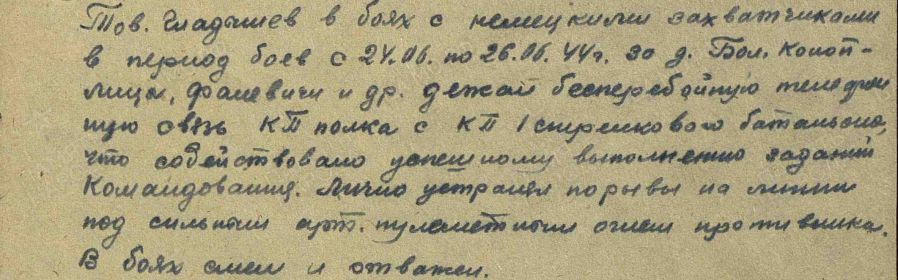 Тов. Гладышев в боях с немецкими захватчиками
в период боев с 24.06. по 26.06.44г. за д. Бол. Коноп-
лица, Фалевичи и др. дежал бесперебойную телефон
ную связь КП полка с КП 1 стрелкового батальона,
что содействовало успешному выполнению заданий
Командования. Лично устранял порывы на линии
под сильным арт. пулеметным огнем противника.
В боях смел и отважен.